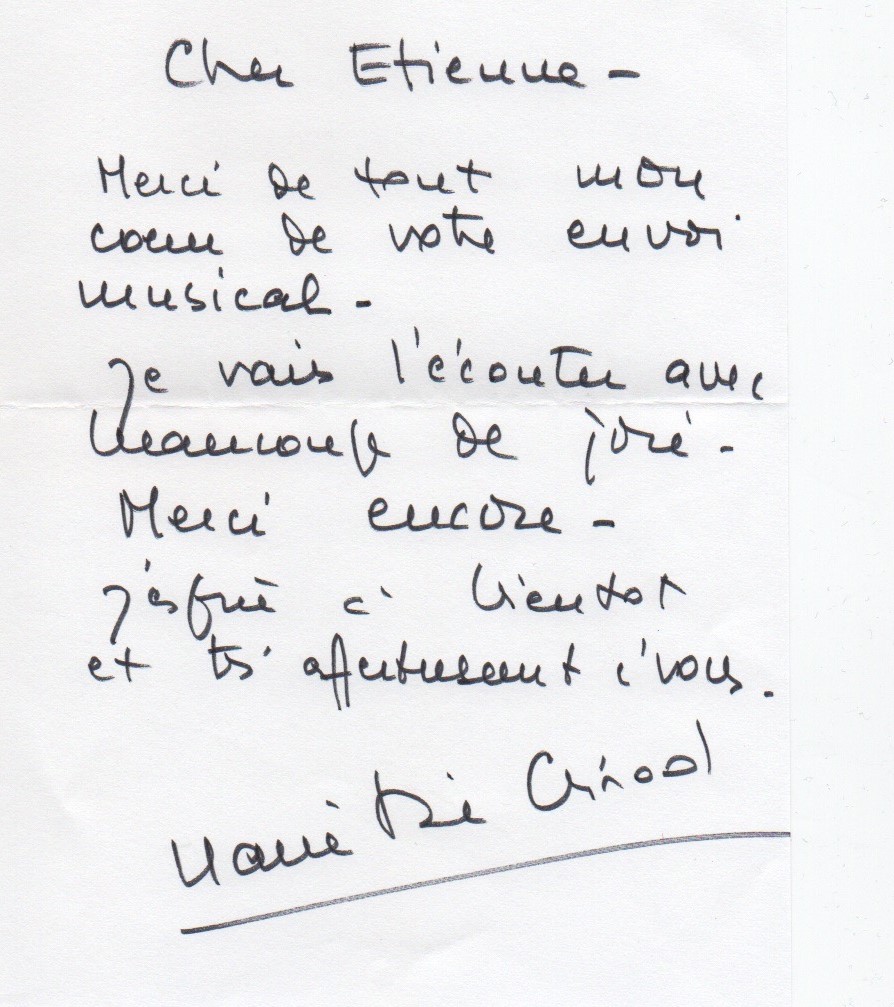 Cher Etienne -
Merci de tout mon
cœur de votre envoi
musical -
Je vais l'écouter avec
beaucoup de joie -
Merci encore -
J'espère à bientot
et très affectueusement à vous.
Marie Girod